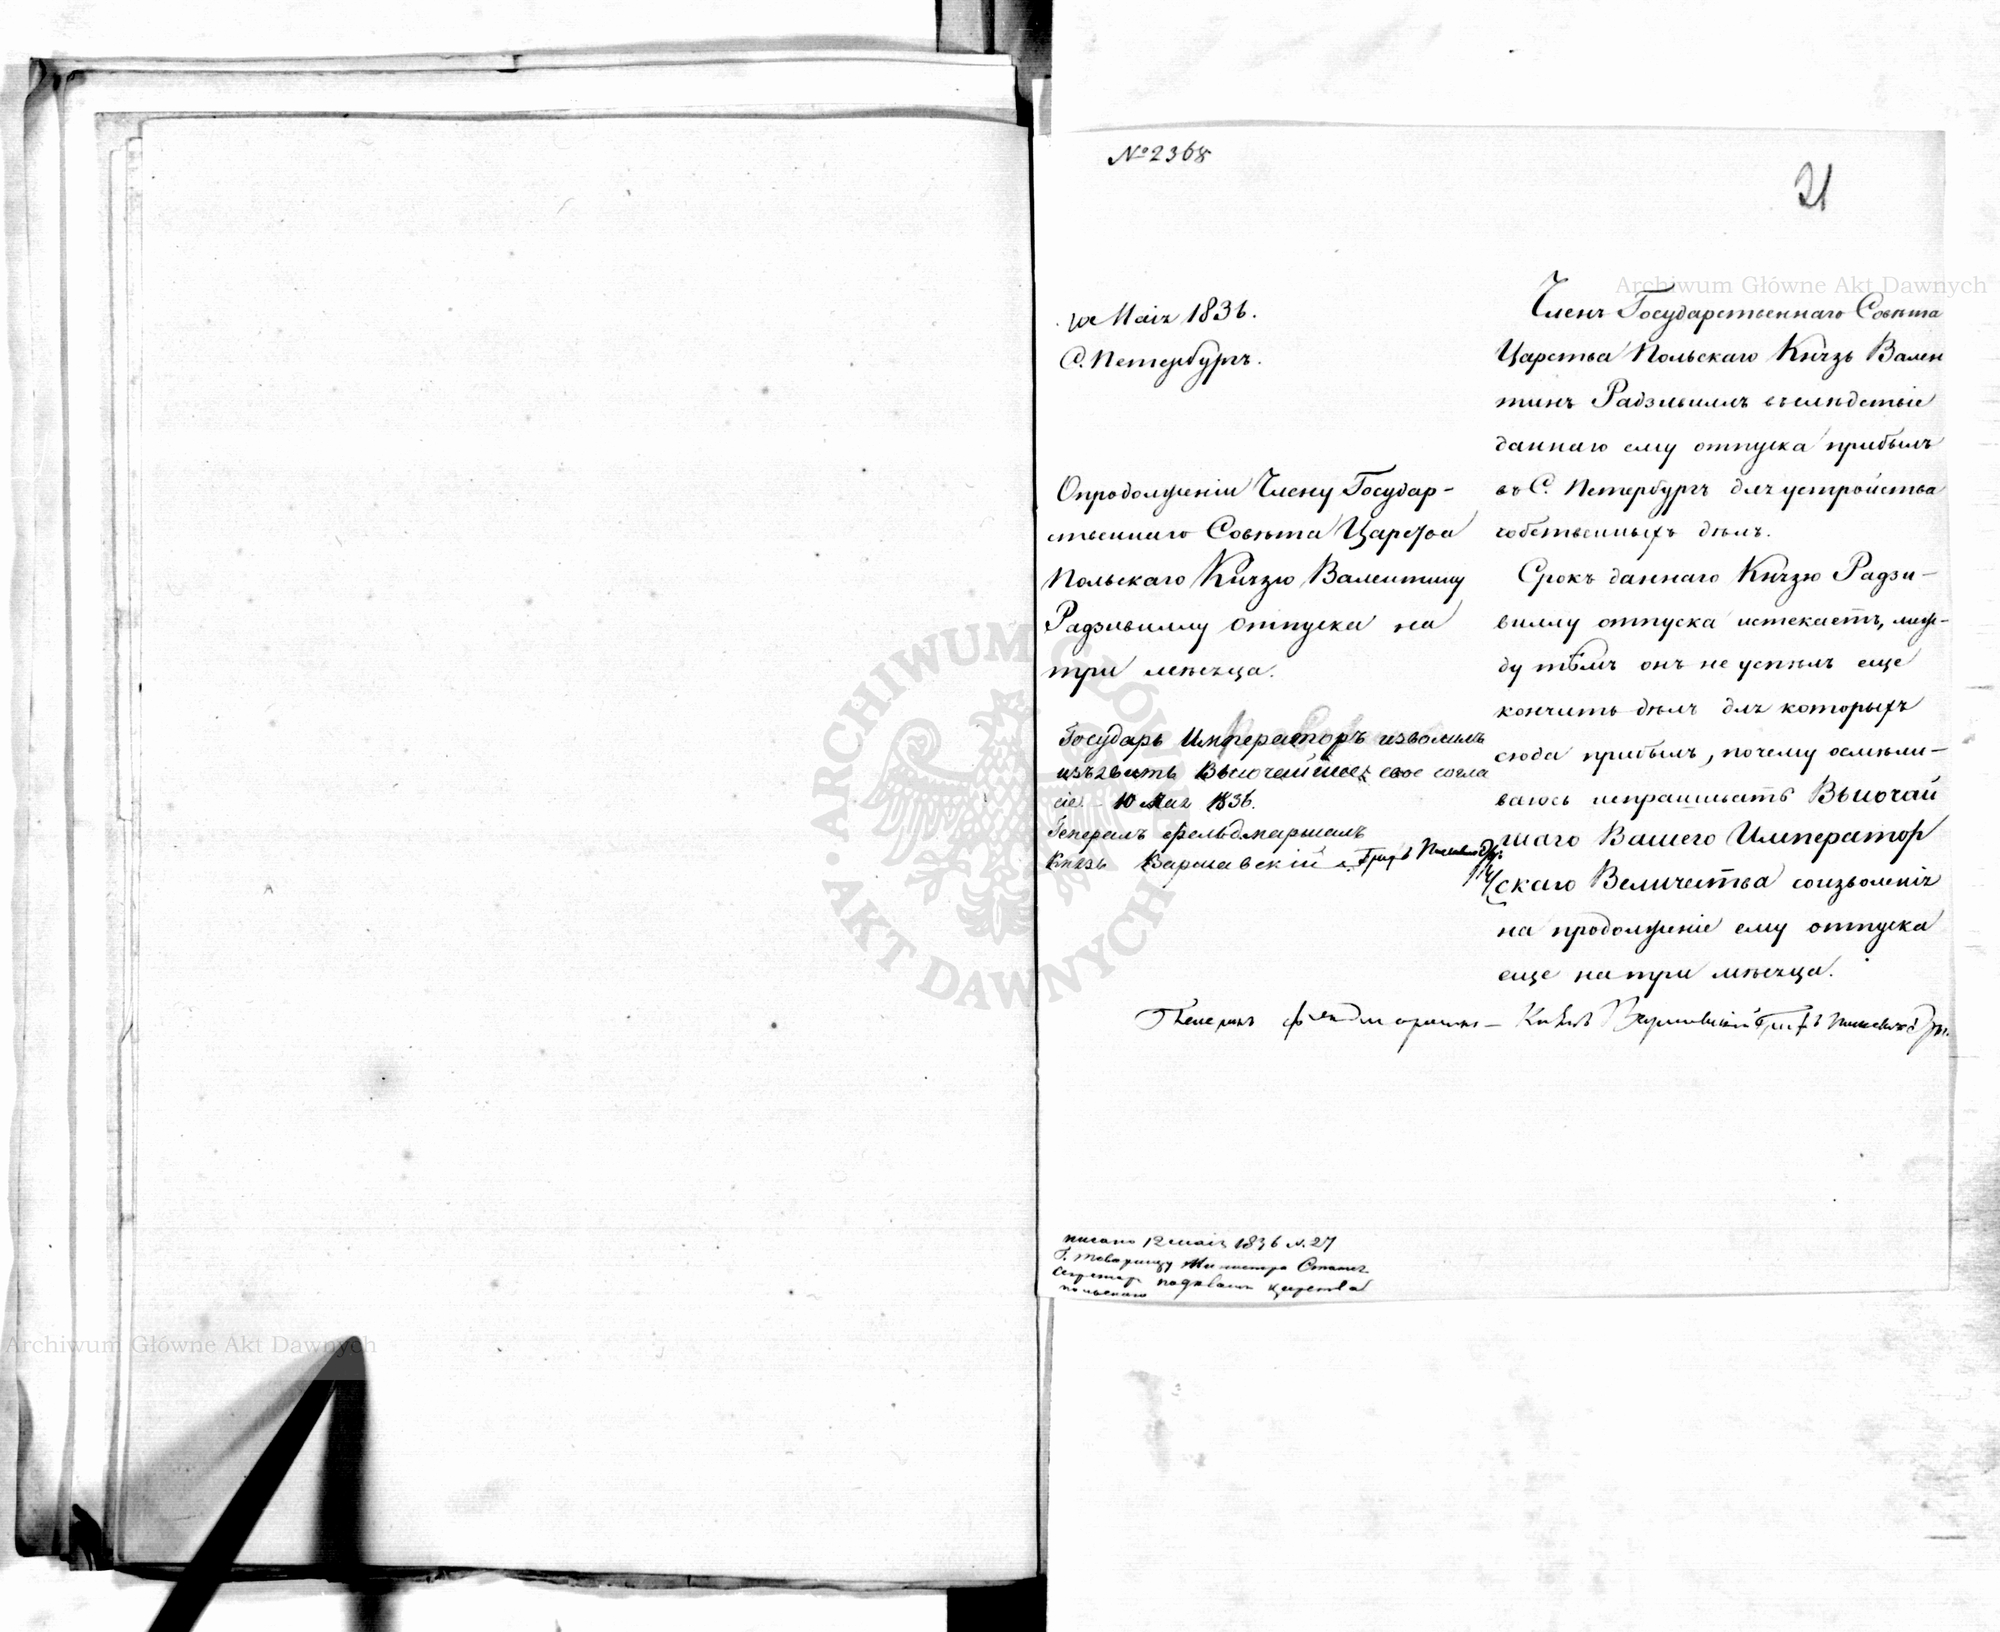 № 2368
21
10 Маія 1836.
С. Петербургъ.
О продолженіи Члену Государ-
ственнаго Совѣта Царства
Польскаго Князю Валентину
Радзивиллу отпуска на
три мѣсяца.
Государь Императоръ изволилъ
изъявить Высочайшее свое согла
сіе. - 10 Мая 1836.
Генералъ Фельдмаршалъ
Князь Варшавскій Графъ Паскевичъ Эрив.
Членъ Государственнаго Совѣта
Царства Польскаго Князь Вален
тинъ Радзивиллъ вслѣдствіе
даннаго ему отпуска прибылъ
въ С. Петербургъ для устройства
собственныхъ дѣлъ.
Срокъ даннаго Князю Радзи-
виллу отпуска истекаетъ, меж-
ду тѣмъ онъ не успѣлъ еще
кончить дѣлъ для которыхъ
сюда прибылъ, почему осмѣли-
ваюсь испрашивать Высочай
шаго Вашего Император
скаго Величества соизволенія
на продолженіе ему отпуска
еще на три мѣсяца.
Генералъ Фельдмаршалъ Князь Варшавскій Графъ Паскевичъ Эрив.
писано 12 маія 1836 N. 27
Г. Товарищу Министра Статсъ
Секретаря Царства
Польскаго
ARCHIWUM GŁÓWNE AKT DAWNYCH
Archiwum Główne Akt Dawnych
Archiwum Główne Akt Dawnych